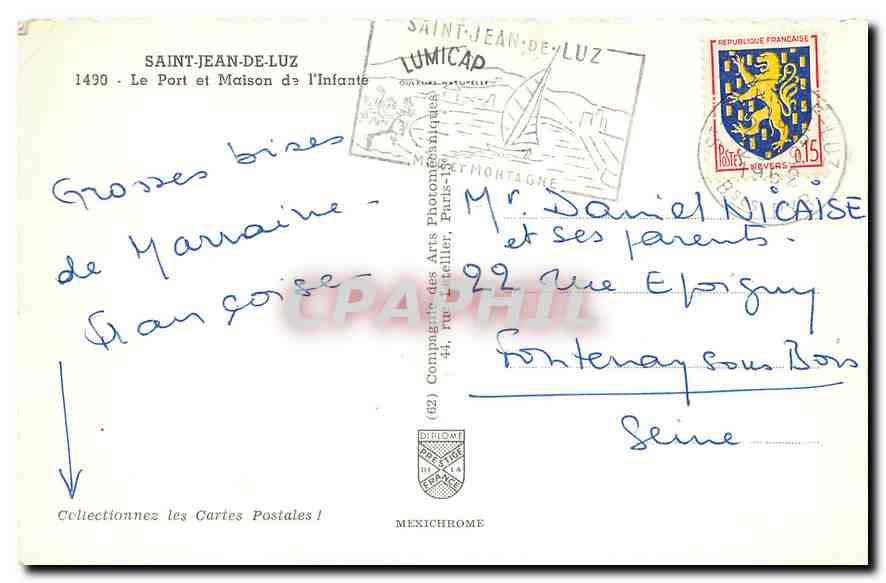 SAINT-JEAN-DE-LUZ
1490 - Le Port et Maison de l'Infante
SAINT-JEAN-DE-LUZ
LUMICAP
COULEURS NATURELLES
MER ET MONTAGNE
REPUBLIQUE FRANCAISE
POSTES
NEVERS
0,15
1962
Grosses bises
de Marraine -
Françoise
Collectionnez les Cartes Postales !
(62) Compagnie des Arts Photomécaniques
44, rue Letellier, Paris-15e
CPAPHIL
Mr. Daniel NICAISE
et ses parents.
22 rue Epoigny
Fontenay sous Bois
Seine
DIPLOME
PRESTIGE
DE LA
FRANCE
MEXICHROME